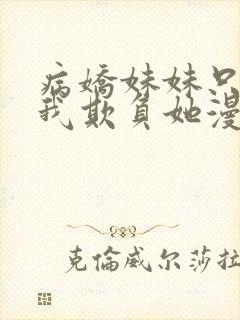 病嬌妹妹只
我欺負她漫
克倫威尔莎拉